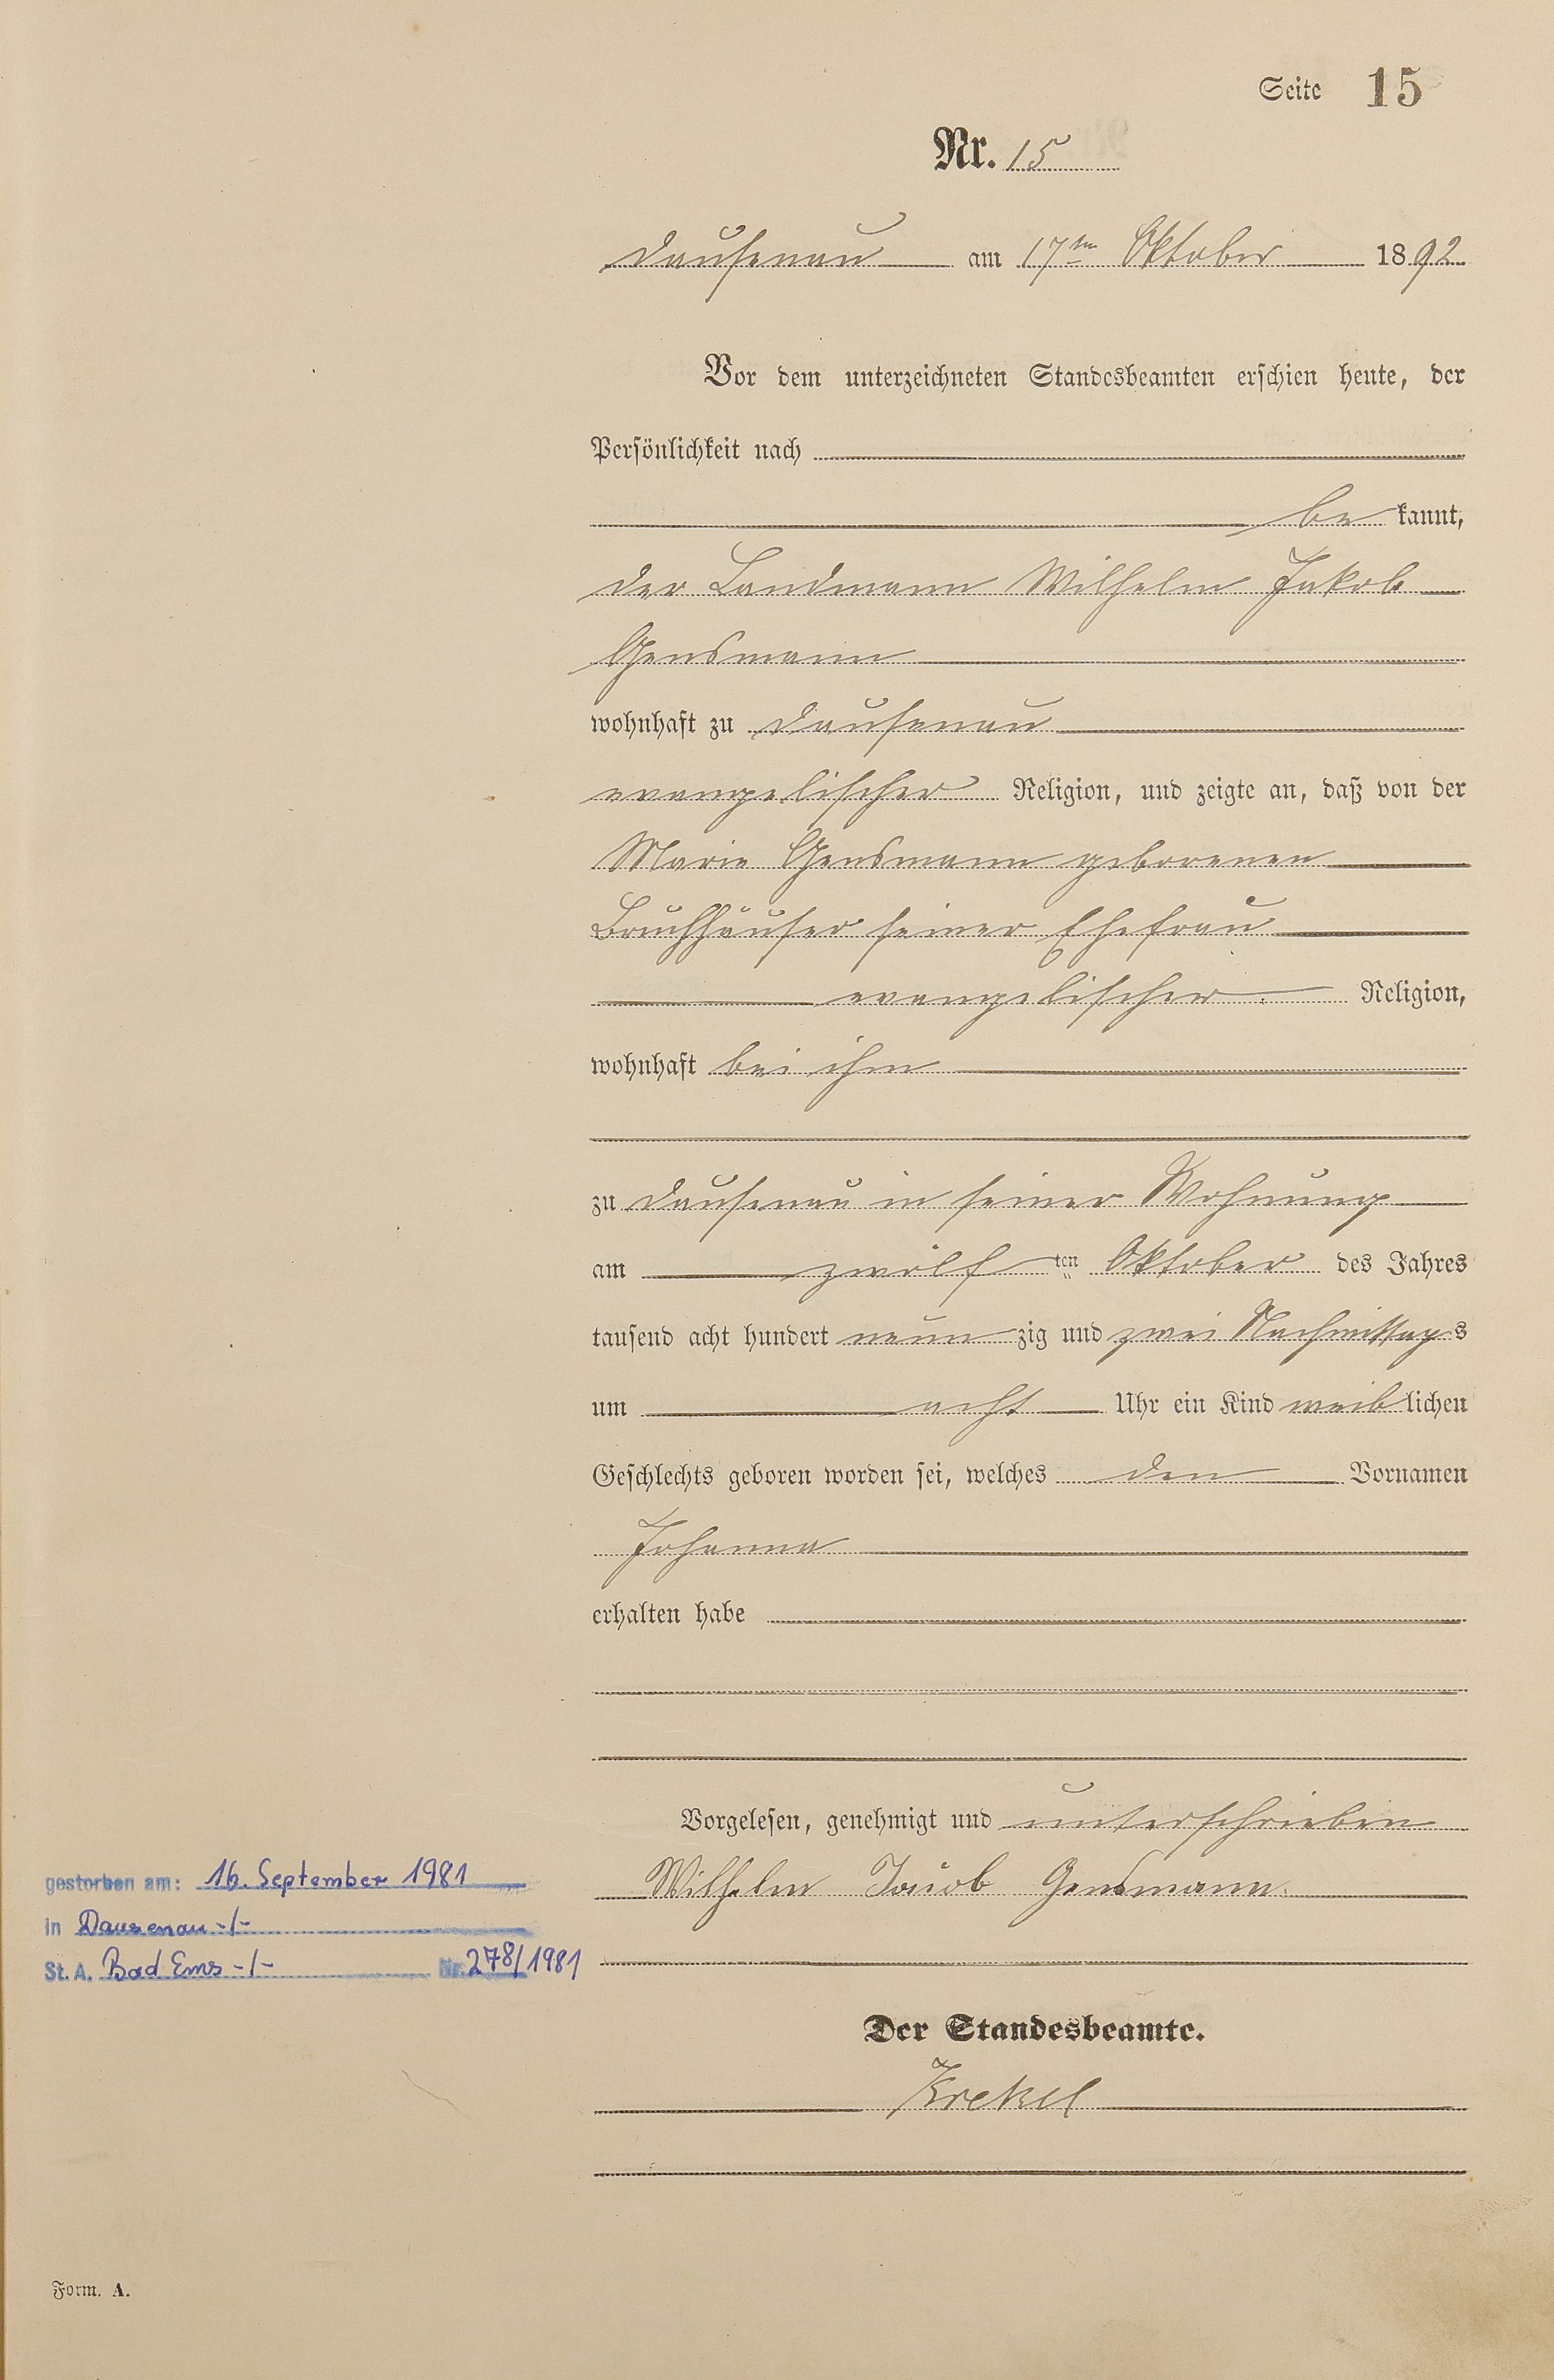 Seite 15
Nr. 15
Dausenau am 17ten Oktober 1892
Vor dem unterzeichneten Standesbeamten erschien heute, der
Persönlichkeit nach
bekannt,
der Landmann Wilhelm Jakob
Gensmann
wohnhaft zu Dausenau
evangelischer Religion, und zeigte an, daß von der
Marie Gensmann geborenen
Bruchhäuser seiner Ehefrau
evangelischer Religion,
wohnhaft bei ihm
zu Dausenau in seiner Wohnung
am zwölften Oktober des Jahres
tausend acht hundert neunzig und zwei Nachmittags
um acht Uhr ein Kind weiblichen
Geschlechts geboren worden sei, welches den Vornamen
Johanna
erhalten habe
Vorgelesen, genehmigt und unterschrieben
Wilhelm Jacob Gensmann.
gestorben am: 16. September 1981
in Dausenau -/-
St. A. Bad Ems -/- Nr. 278/1981
Der Standesbeamte.
Krekel
Form. A.